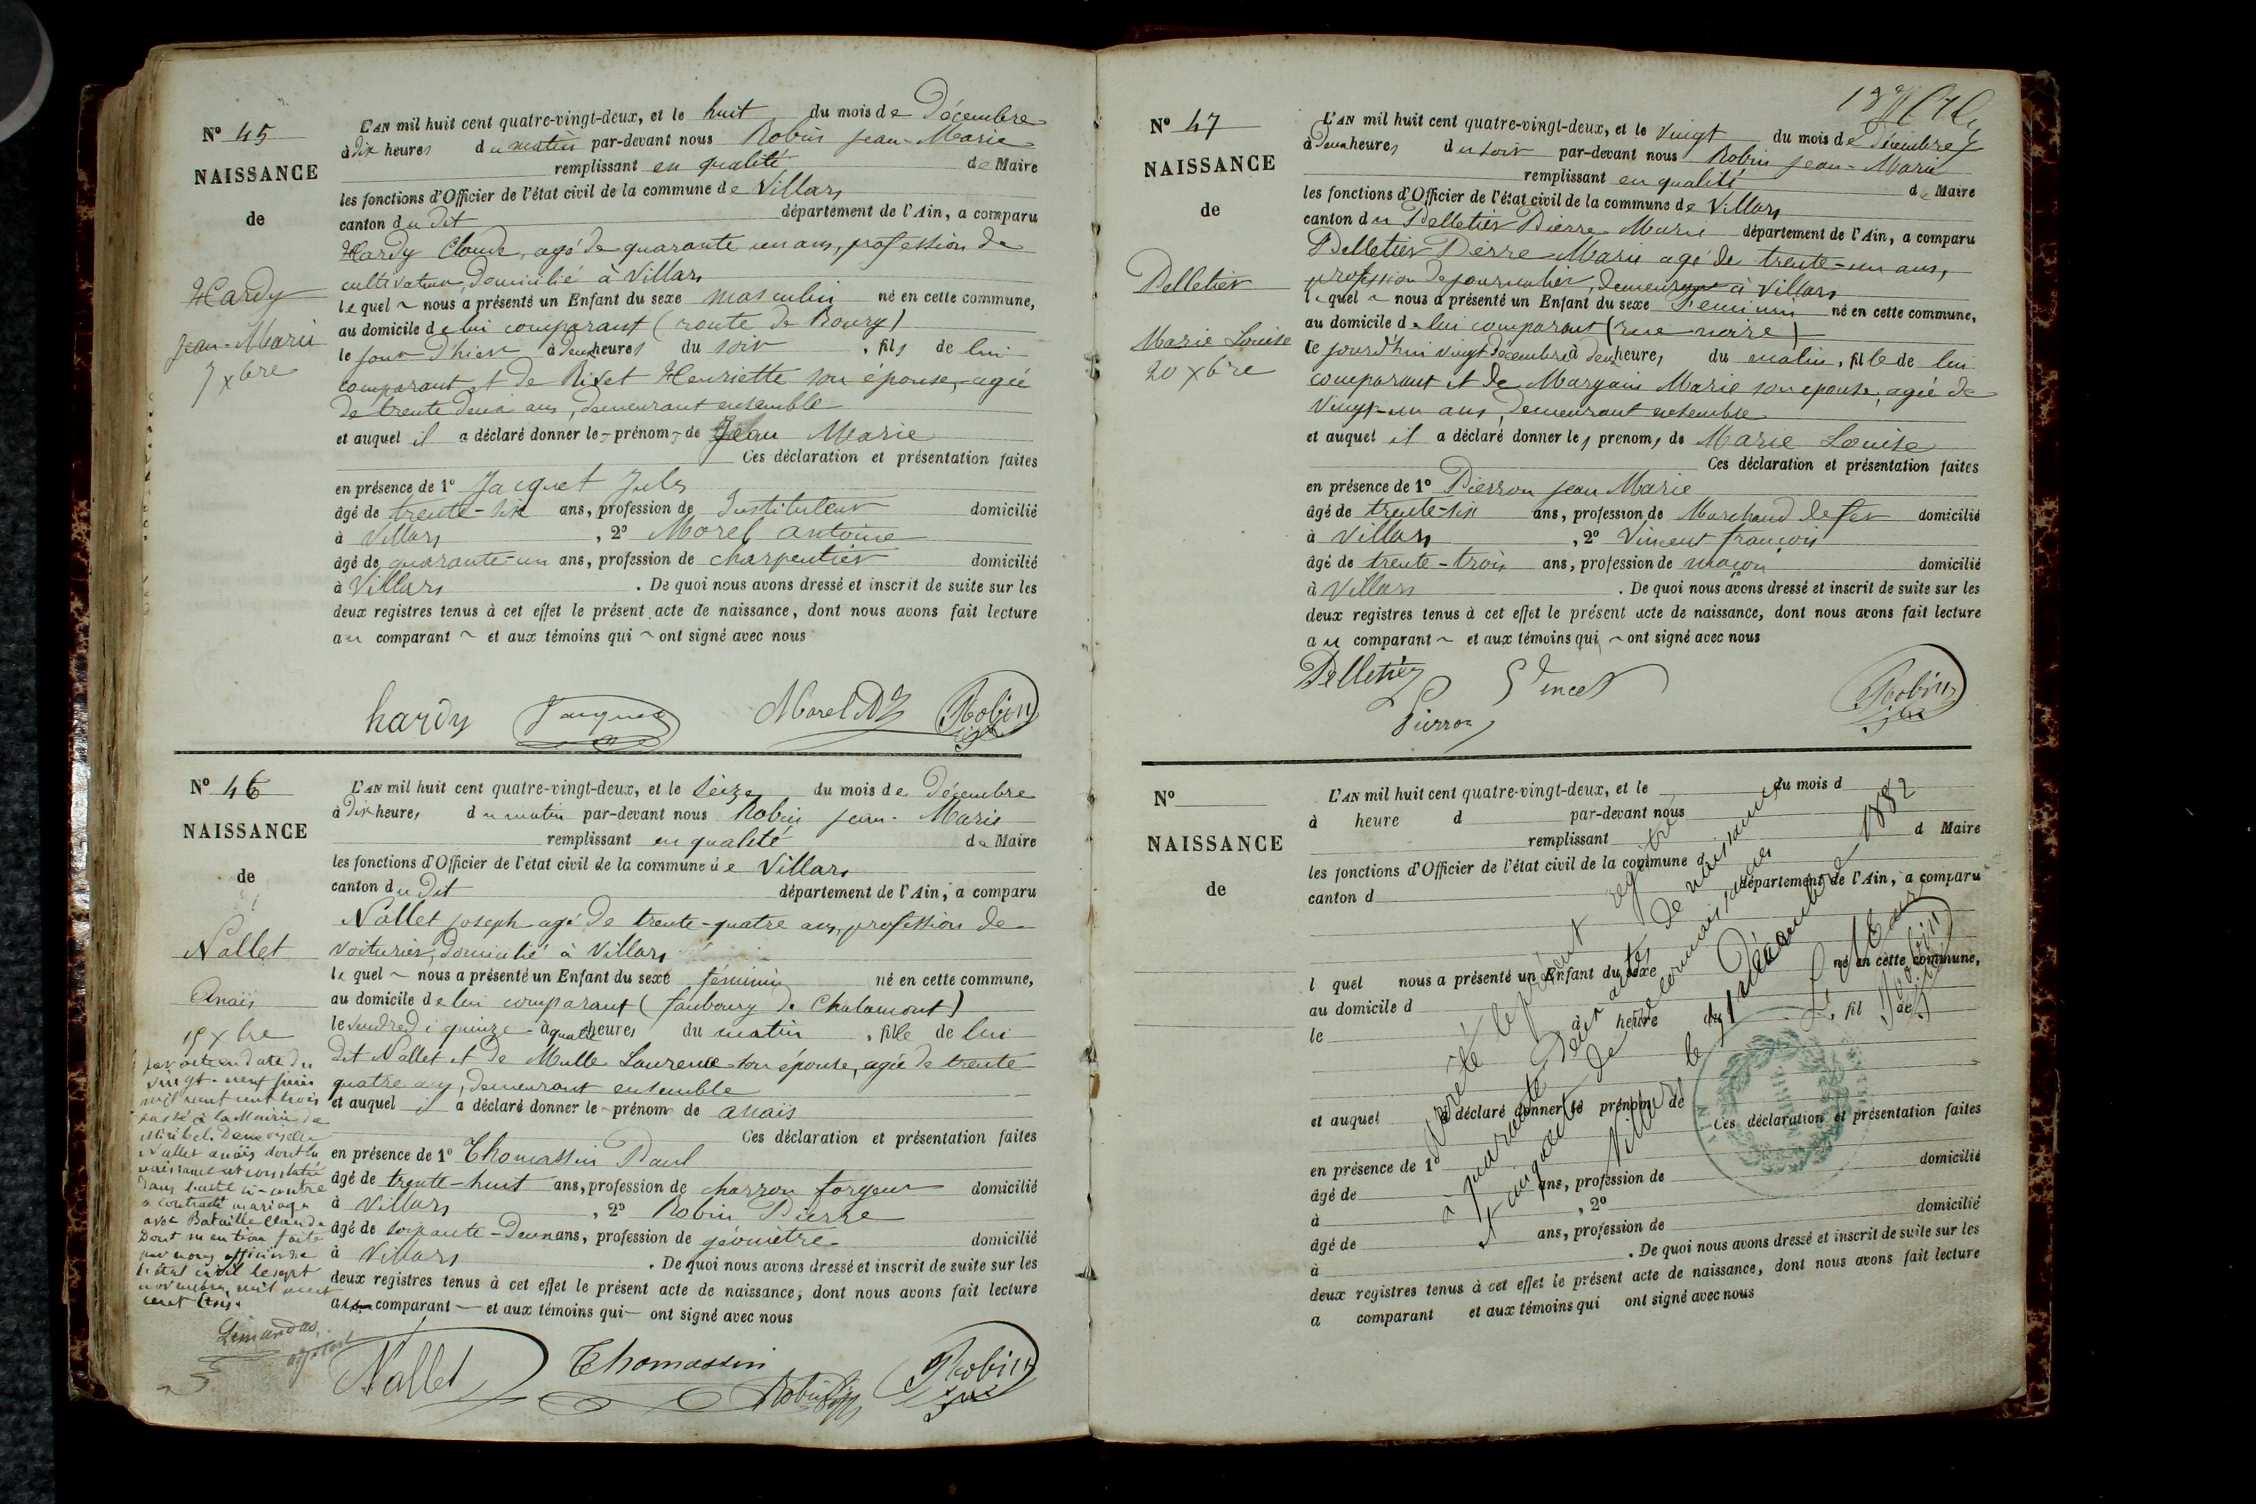 Nº 45
NAISSANCE
de
Hardy
Jean-Marie
7 xbre
L'AN mil huit cent quatre-vingt-deux, et le huit du mois de Décembre
à dix heures du matin par-devant nous Robin Jean-Marie
remplissant en qualité de Maire
les fonctions d'Officier de l'état civil de la commune de Villars
canton du dit département de l'Ain, a comparu
Hardy Claude, agé de quarante un ans, profession de
cultivateur, domicilié à Villars
lequel ~ nous a présenté un Enfant du sexe masculin né en cette commune,
au domicile de lui comparant (route de Bourg)
le jour d'hier à deux heures du soir, fils de lui
comparant et de Rivet Henriette son épouse, agée
de trente deux ans, demeurant ensemble
et auquel il a déclaré donner le prénom de Jean Marie
Ces déclaration et présentation faites
en présence de 1º Jacquet Jules
âgé de trente-six ans, profession de Instituteur domicilié
à Villars, 2º Morel Antoine
âgé de quarante-un ans, profession de charpentier domicilié
à Villars. De quoi nous avons dressé et inscrit de suite sur les
deux registres tenus à cet effet le présent acte de naissance, dont nous avons fait lecture
au comparant ~ et aux témoins qui ~ ont signé avec nous
hardy Jacquet Morel Robin
Nº 46
NAISSANCE
de
Nallet
Anaïs
15 xbre
par acte en date du
vingt-neuf juin
mil neuf cent trois
passé à la Mairie de
Miribel, Demoiselle
Nallet anaïs dont la
naissance est constatée
dans l'acte ci-contre
a contracté mariage
avec Bataille Claude
Dont mention faite
par nous officier de
l'état civil le sept
mil neuf
cent trois.
L'AN mil huit cent quatre-vingt-deux, et le seize du mois de Décembre
à dix heures du matin par-devant nous Robin Jean-Marie
remplissant en qualité de Maire
les fonctions d'Officier de l'état civil de la commune de Villars
canton du dit département de l'Ain, a comparu
Nallet Joseph agé de trente-quatre ans, profession de
voiturier, domicilié à Villars
lequel ~ nous a présenté un Enfant du sexe féminin né en cette commune,
au domicile de lui comparant (faubourg de Chalamont)
le vendredi quinze à quatre heures du matin, fille de lui
dit Nallet et de Mulle Laurence son épouse, agée de trente
quatre ans, demeurant ensemble
et auquel il a déclaré donner le prénom de anaïs
Ces déclaration et présentation faites
en présence de 1º Thomassin Paul
âgé de trente-huit ans, profession de charron forgeur domicilié
à Villars, 2º Robin Pierre
âgé de soixante-deux ans, profession de géomètre domicilié
à Villars. De quoi nous avons dressé et inscrit de suite sur les
deux registres tenus à cet effet le présent acte de naissance, dont nous avons fait lecture
au comparant — et aux témoins qui — ont signé avec nous
Nallet Thomassin Robin Robin
Nº 47
NAISSANCE
de
Pelletier
Marie Louise
20 xbre
L'AN mil huit cent quatre-vingt-deux, et le vingt du mois de Décembre
à deux heures du soir par-devant nous Robin Jean-Marie
remplissant en qualité de Maire
les fonctions d'Officier de l'état civil de la commune de Villars
canton du Pelletier Pierre Marie département de l'Ain, a comparu
Pelletier Pierre Marie agé de trente-un ans,
profession de journalier, demeurant à Villars
lequel ~ nous a présenté un Enfant du sexe Féminin né en cette commune,
au domicile de lui comparant (rue noire)
le jourd'hui vingt décembre à deux heures du matin, fille de lui
comparant et de Marie son épouse, agée de
vingt-un ans, demeurant ensemble
et auquel il a déclaré donner les prénoms de Marie Louise
Ces déclaration et présentation faites
en présence de 1º Pierron Jean Marie
âgé de trente-six ans, profession de Marchand de fer domicilié
à Villars, 2º Vincent françois
âgé de trente-trois ans, profession de maçon domicilié
à Villars. De quoi nous avons dressé et inscrit de suite sur les
deux registres tenus à cet effet le présent acte de naissance, dont nous avons fait lecture
au comparant ~ et aux témoins qui ~ ont signé avec nous
Pelletier Vincent Robin
Pierron
Nº
NAISSANCE
de
L'AN mil huit cent quatre-vingt-deux, et le du mois d
à heure d par-devant nous
remplissant d Maire
les fonctions d'Officier de l'état civil de la commune d
canton d département de l'Ain, a comparu
l quel nous a présenté un Enfant du sexe né en cette commune,
au domicile d
le à heure du, fil de
et auquel a déclaré donner le prénom de
Ces déclaration et présentation faites
en présence de 1º
âgé de ans, profession de domicilié
à, 2º
âgé de ans, profession de domicilié
à. De quoi nous avons dressé et inscrit de suite sur les
deux registres tenus à cet effet le présent acte de naissance, dont nous avons fait lecture
a comparant et aux témoins qui ont signé avec nous
Arrêté le présent registre
à quarante deux actes de naissance
et cinq actes de reconnaissances
Villars le 31 Décembre 1882
Le Maire
Robin